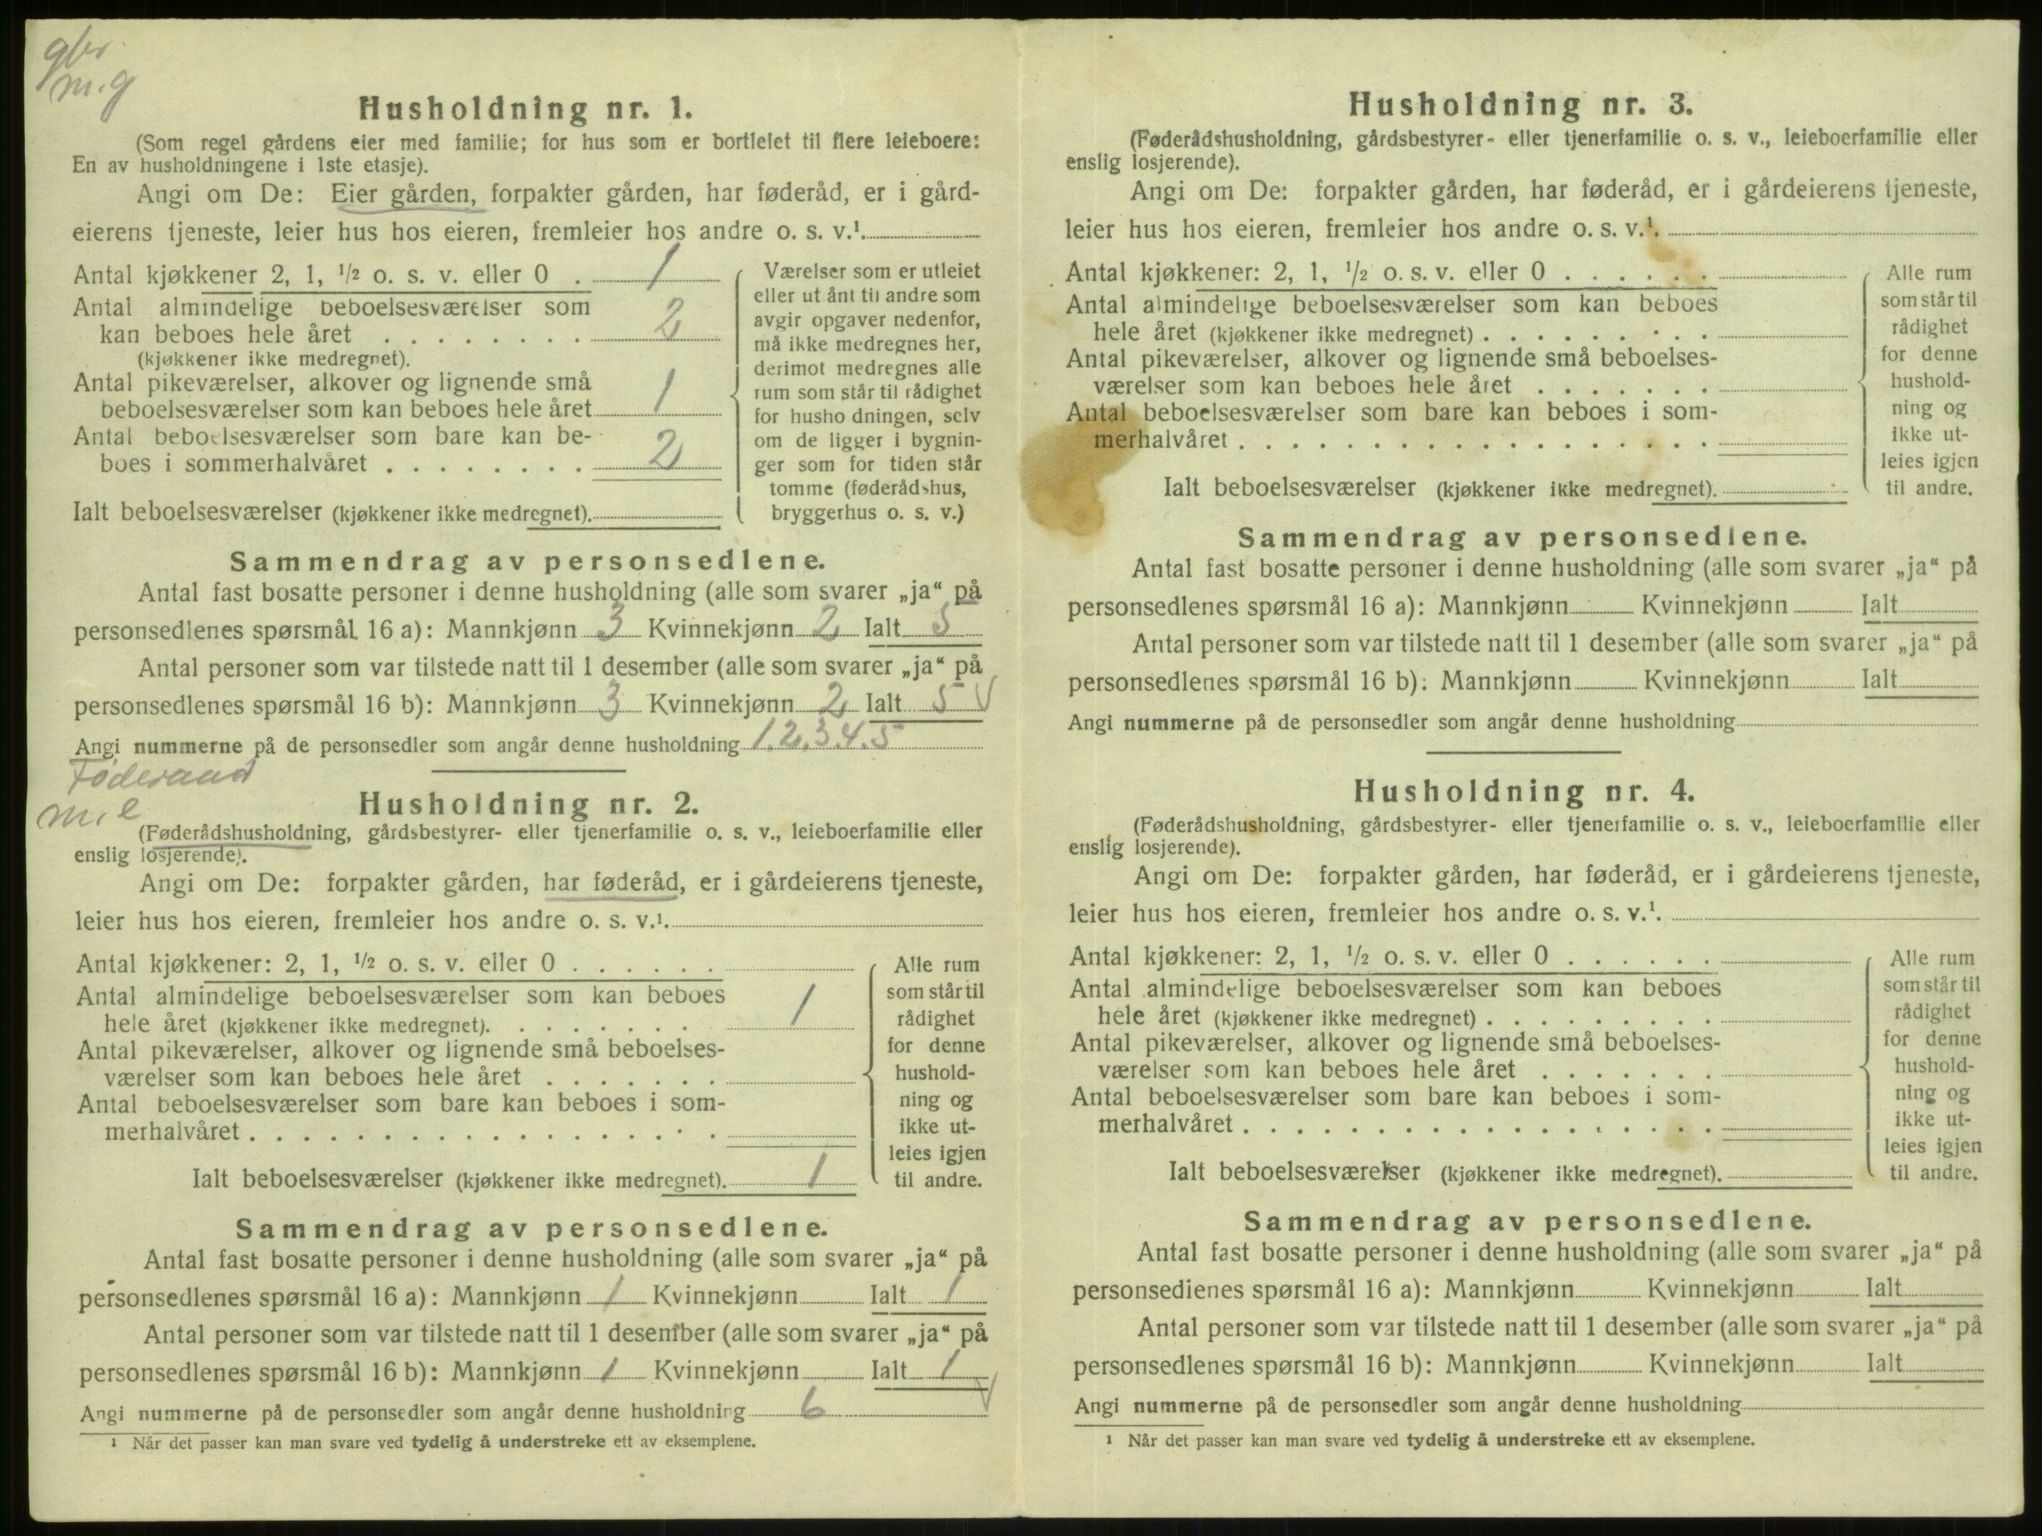 gbr.
m.g
Husholdning nr. 1.
(Som regel gårdens eier med familie; for hus som er bortleiet til flere leieboere:
En av husholdningene i 1ste etasje).
Angi om De: Eier gården, forpakter gården, har føderåd, er i gård-
eierens tjeneste, leier hus hos eieren, fremleier hos andre o. s. v.¹.
Antal kjøkkener 2, 1, ½ o. s. v. eller 0 . 1
Antal almindelige beboelsesværelser som
kan beboes hele året . . . . . . . . 2
(kjøkkener ikke medregnet).
Antal pikeværelser, alkover og lignende små
beboelsesværelser som kan beboes hele året 1
Antal beboelsesværelser som bare kan be-
boes i sommerhalvåret . . . . . . . . 2
Ialt beboelsesværelser (kjøkkener ikke medregnet).
Værelser som er utleiet
eller ut ånt til andre som
avgir opgaver nedenfor,
må ikke medregnes her,
derimot medregnes alle
rum som står til rådighet
for husho dningen, selv
om de ligger i bygnin-
ger som for tiden står
tomme (føderådshus,
bryggerhus o. s. v.)
Sammendrag av personsedlene.
Antal fast bosatte personer i denne husholdning (alle som svarer „ja“ på
personsedlenes spørsmål 16 a): Mannkjønn 3 Kvinnekjønn 2 Ialt 5
Antal personer som var tilstede natt til 1 desember (alle som svarer „ja“ på
personsedlenes spørsmål 16 b): Mannkjønn 3 Kvinnekjønn 2 Ialt 5 V
Angi nummerne på de personsedler som angår denne husholdning 1.2.3.4.5
Føderaad
m.e
Husholdning nr. 2.
(Føderådshusholdning, gårdsbestyrer- eller tjenerfamilie o. s. v., leieboerfamilie eller
enslig losjerende).
Angi om De: forpakter gården, har føderåd, er i gårdeierens tjeneste,
leier hus hos eieren, fremleier hos andre o. s. v.¹.
Antal kjøkkener: 2, 1, ½ o. s. v. eller 0 . . . . . .
Antal almindelige beboelsesværelser som kan beboes
hele året (kjøkkener ikke medregnet). . . . . . . . 1
Antal pikeværelser, alkover og lignende små beboelses-
værelser som kan beboes hele året . . . . . . .
Antal beboelsesværelser som bare kan beboes i som-
merhalvåret . . . . . . . . . . . . . . . . . .
Ialt beboelsesværelser (kjøkkener ikke medregnet). 1
Alle rum
som står til
rådighet
for denne
hushold-
ning og
ikke ut-
leies igjen
til andre.
Sammendrag av personsedlene.
Antal fast bosatte personer i denne husholdning (alle som svarer „ja“ på
personsedlenes spørsmål 16 a): Mannkjønn 1 Kvinnekjønn Ialt 1
Antal personer som var tilstede natt til 1 desember (alle som svarer „ja“ på
personsedlenes spørsmål 16 b): Mannkjønn 1 Kvinnekjønn Ialt 1 V
Angi nummerne på de personsedler som angår denne husholdning 6
¹ Når det passer kan man svare ved tydelig å understreke ett av eksemplene.
Husholdning nr. 3.
(Føderådshusholdning, gårdsbestyrer- eller tjenerfamilie o. s. v., leieboerfamilie eller
enslig losjerende).
Angi om De: forpakter gården, har føderåd, er i gårdeierens tjeneste,
leier hus hos eieren, fremleier hos andre o. s. v.¹.
Antal kjøkkener: 2, 1, ½ o. s. v. eller 0 . . . . . .
Antal almindelige beboelsesværelser som kan beboes
hele året (kjøkkener ikke medregnet) . . . . . . . . .
Antal pikeværelser, alkover og lignende små beboelses-
værelser som kan beboes hele året . . . . . . .
Antal beboelsesværelser som bare kan beboes i som-
merhalvåret . . . . . . . . . . . . . . . . . .
Ialt beboelsesværelser (kjøkkener ikke medregnet).
Alle rum
som står til
rådighet
for denne
hushold-
ning og
ikke ut-
leies igjen
til andre.
Sammendrag av personsedlene.
Antal fast bosatte personer i denne husholdning (alle som svarer „ja“ på
personsedlenes spørsmål 16 a): Mannkjønn Kvinnekjønn Ialt
Antal personer som var tilstede natt til 1 desember (alle som svarer „ja“ på
personsedlenes spørsmål 16 b): Mannkjønn Kvinnekjønn Ialt
Angi nummerne på de personsedler som angår denne husholdning
Husholdning nr. 4.
(Føderådshusholdning, gårdsbestyrer- eller tjenerfamilie o. s. v., leieboerfamilie eller
enslig losjerende).
Angi om De: forpakter gården, har føderåd, er i gårdeierens tjeneste,
leier hus hos eieren, fremleier hos andre o. s. v.¹.
Antal kjøkkener: 2, 1, ½ o. s. v. eller 0 . . . . . .
Antal almindelige beboelsesværelser som kan beboes
hele året (kjøkkener ikke medregnet) . . . . . . . . .
Antal pikeværelser, alkover og lignende små beboelses-
værelser som kan beboes hele året . . . . . . .
Antal beboelsesværelser som bare kan beboes i som-
merhalvåret . . . . . . . . . . . . . . . . . .
Ialt beboelsesværelser (kjøkkener ikke medregnet).
Alle rum
som står til
rådighet
for denne
hushold-
ning og
ikke ut-
leies igjen
til andre.
Sammendrag av personsedlene.
Antal fast bosatte personer i denne husholdning (alle som svarer „ja“ på
personsedlenes spørsmål 16 a): Mannkjønn Kvinnekjønn Ialt
Antal personer som var tilstede natt til 1 desember (alle som svarer „ja“ på
personsedlenes spørsmål 16 b): Mannkjønn Kvinnekjønn Ialt
Angi nummerne på de personsedler som angår denne husholdning
¹ Når det passer kan man svare ved tydelig å understreke ett av eksemplene.